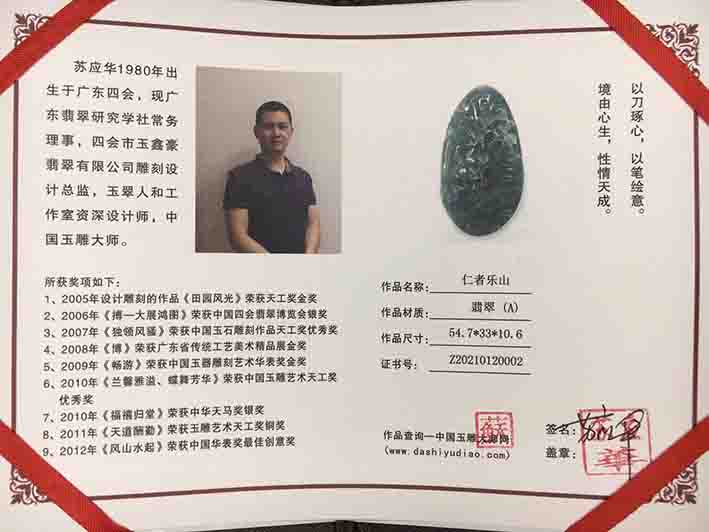 苏应华1980年出
生于广东四会，现广
东翡翠研究学社常务
理事，四会市玉鑫豪
翡翠有限公司雕刻设
计总监，玉翠人和工
作室资深设计师，中
国玉雕大师。
以刀琢心，以笔绘意。
境由心生，性情天成。
所获奖项如下：
1、2005年设计雕刻的作品《田园风光》荣获天工奖金奖
2、2006年《搏一大展鸿图》荣获中国四会翡翠博览会银奖
3、2007年《独领风骚》荣获中国玉石雕刻作品天工奖优秀奖
4、2008年《博》荣获广东省传统工艺美术精品展金奖
5、2009年《畅游》荣获中国玉器雕刻艺术华表奖金奖
6、2010年《兰馨雅溢、蝶舞芳华》荣获中国玉雕艺术天工奖
优秀奖
7、2010年《福禧归堂》荣获中华天马奖银奖
8、2011年《天道酬勤》荣获玉雕艺术天工奖铜奖
9、2012年《风山水起》荣获中国华表奖最佳创意奖
作品名称：仁者乐山
作品材质：翡翠 (A)
作品尺寸：54.7*33*10.6
证书号：Z20210120002
作品查询—中国玉雕大师网
(www.dashiyudiao.com)
蘇
签名：苏应华
盖章：